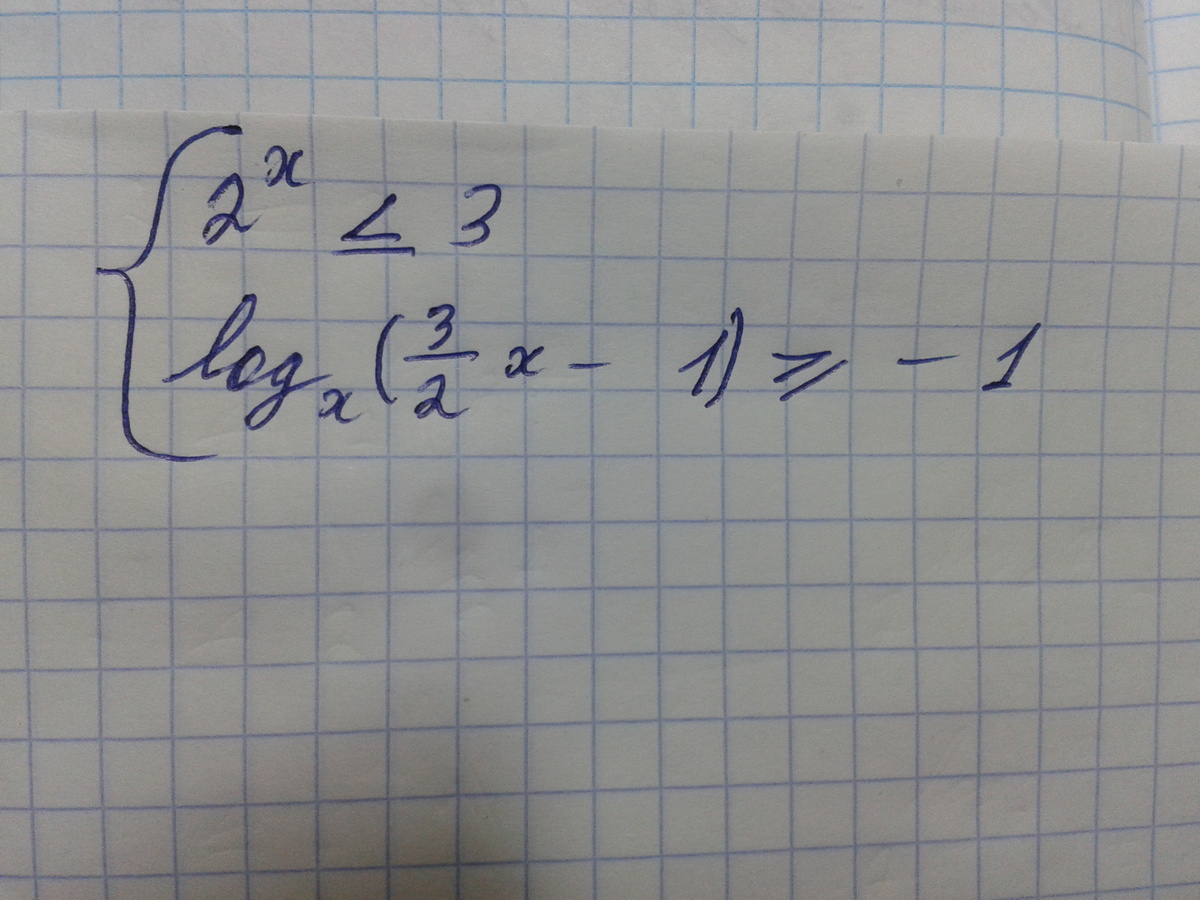 2^x ≤ 3
log_x (3/2 x - 1) ⩾ - 1